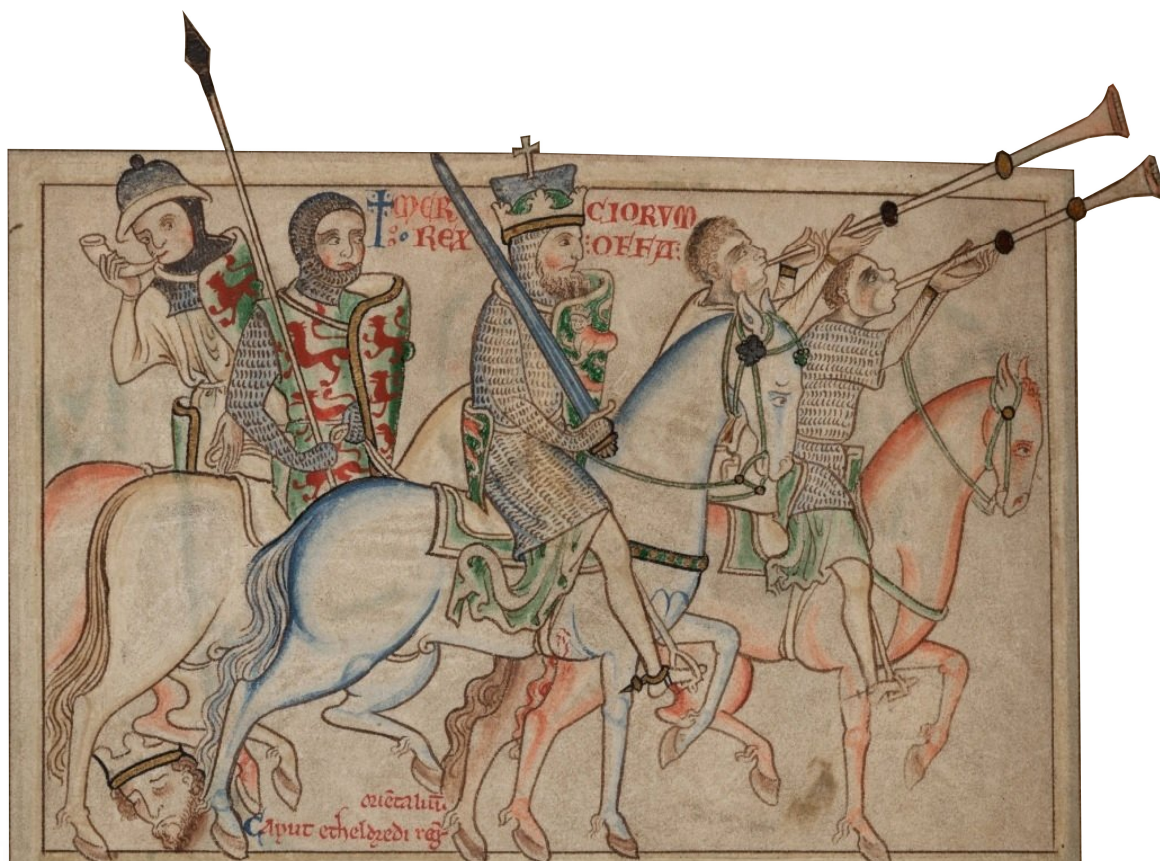 MERCIORVM
REX :OFFA:
orientaliū
Caput etheldredi reg